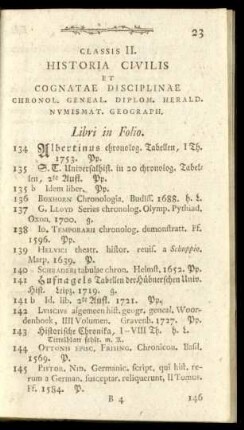 23
CLASSIS II.
HISTORIA CIVILIS
ET
COGNATAE DISCIPLINAE
CHRONOL. GENEAL. DIPLOM. HERALD.
NVMISMAT. GEOGRAPH.
Libri in Folio.
134 Albertinus chronolog. Tabellen, I Th.
1753. Pp.
135 S. T. Universalhist. in 20 chronolog. Tabel-
len, 2te Aufl. Pp.
135 b Idem liber. Pp.
136 BOXHORN Chronologia. Budiss. 1688. h. L.
137 G. LLOYD Series chronolog. Olymp. Pythiad,
Oxon, 1700. g.
138 Io. TEMPORARII chronolog. demonstratt. Ff.
1596. Pp.
139 HELVICI theatr. histor. reuis. a Schuppio.
Marp, 1639. P.
140 SCHRADERI tabulae chron. Helmst. 1652. Pp.
141 Hufnagels Tabellen der Hübnerschen Univ.
Hist. Lipz. 1719. g.
141 b Id. lib. 2te Aufl. 1721. Pp.
142 LUISCIUS algemeen hist. geogr. geneal. Woor-
denboek, IIII Volumen. Gravenh. 1727. Pp.
143 Historische Chronika, I-VIII Th. h. L.
Titulblatt fehlt. m. K.
144 OTTONIS EPISC. FRISING. Chronicon. Basil.
1569. P.
145 PISTOR. NID. Germanic. script. qui hist. re-
rum a German. susceptar. reliquerunt, II Tomus.
Ff. 1584. P.
B 4
146